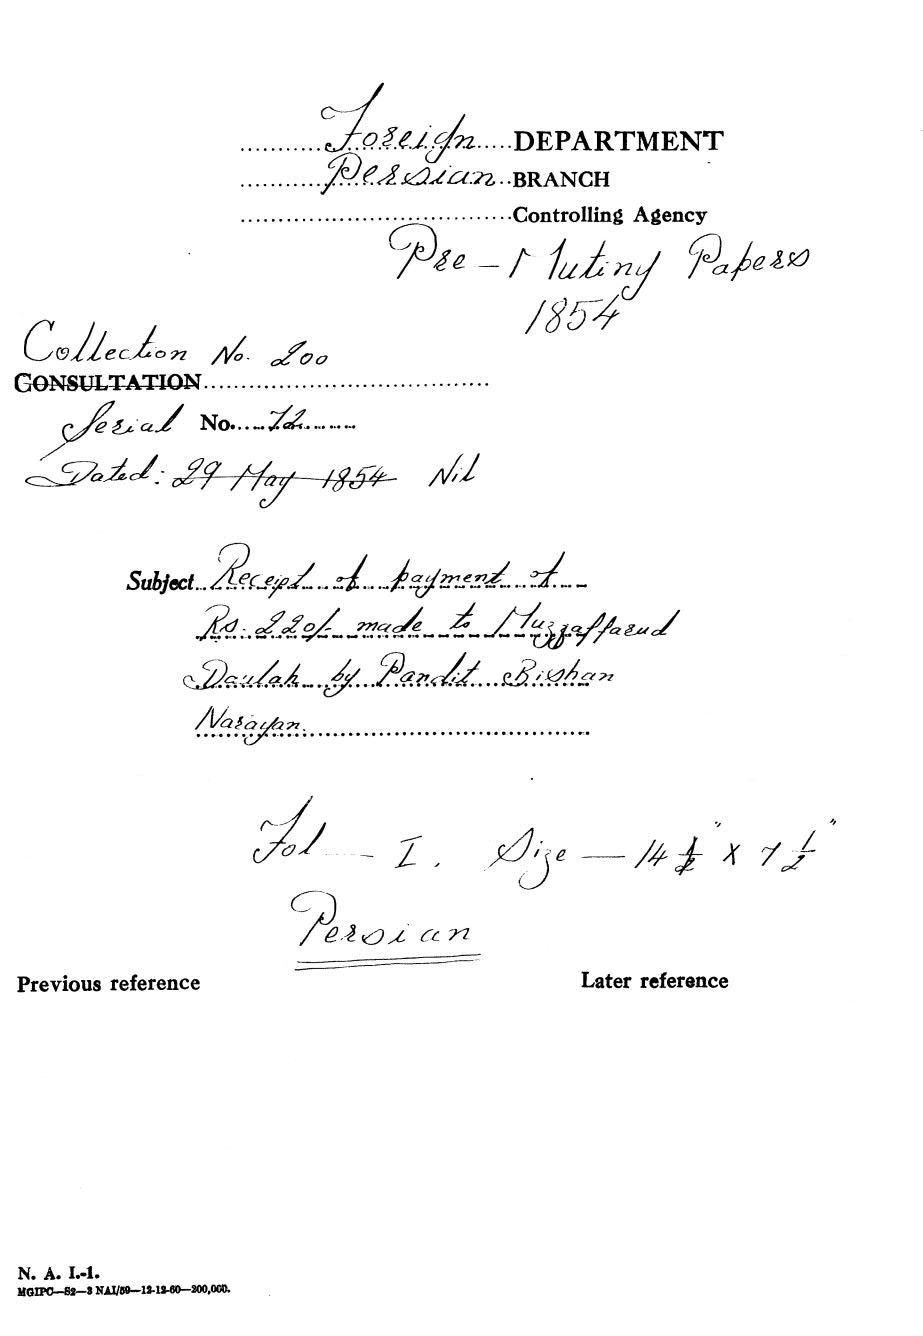 Foreign DEPARTMENT
Persian BRANCH
Controlling Agency
Pre-Mutiny Papers
1854
Collection No. 200
CONSULTATION
Serial No. 72
Dated: 29 May 1854 Nil
Subject Receipt of payment of
Rs. 220/- made to Muzzaffarud
Daulah by Pandit Bishan
Narayan.
Fol — I. Size — 14 1/2" X 7 1/2"
Persian
Previous reference Later reference
N. A. I.-1.
MGIPC—S2—3 NAI/59—12-12-60—200,000.